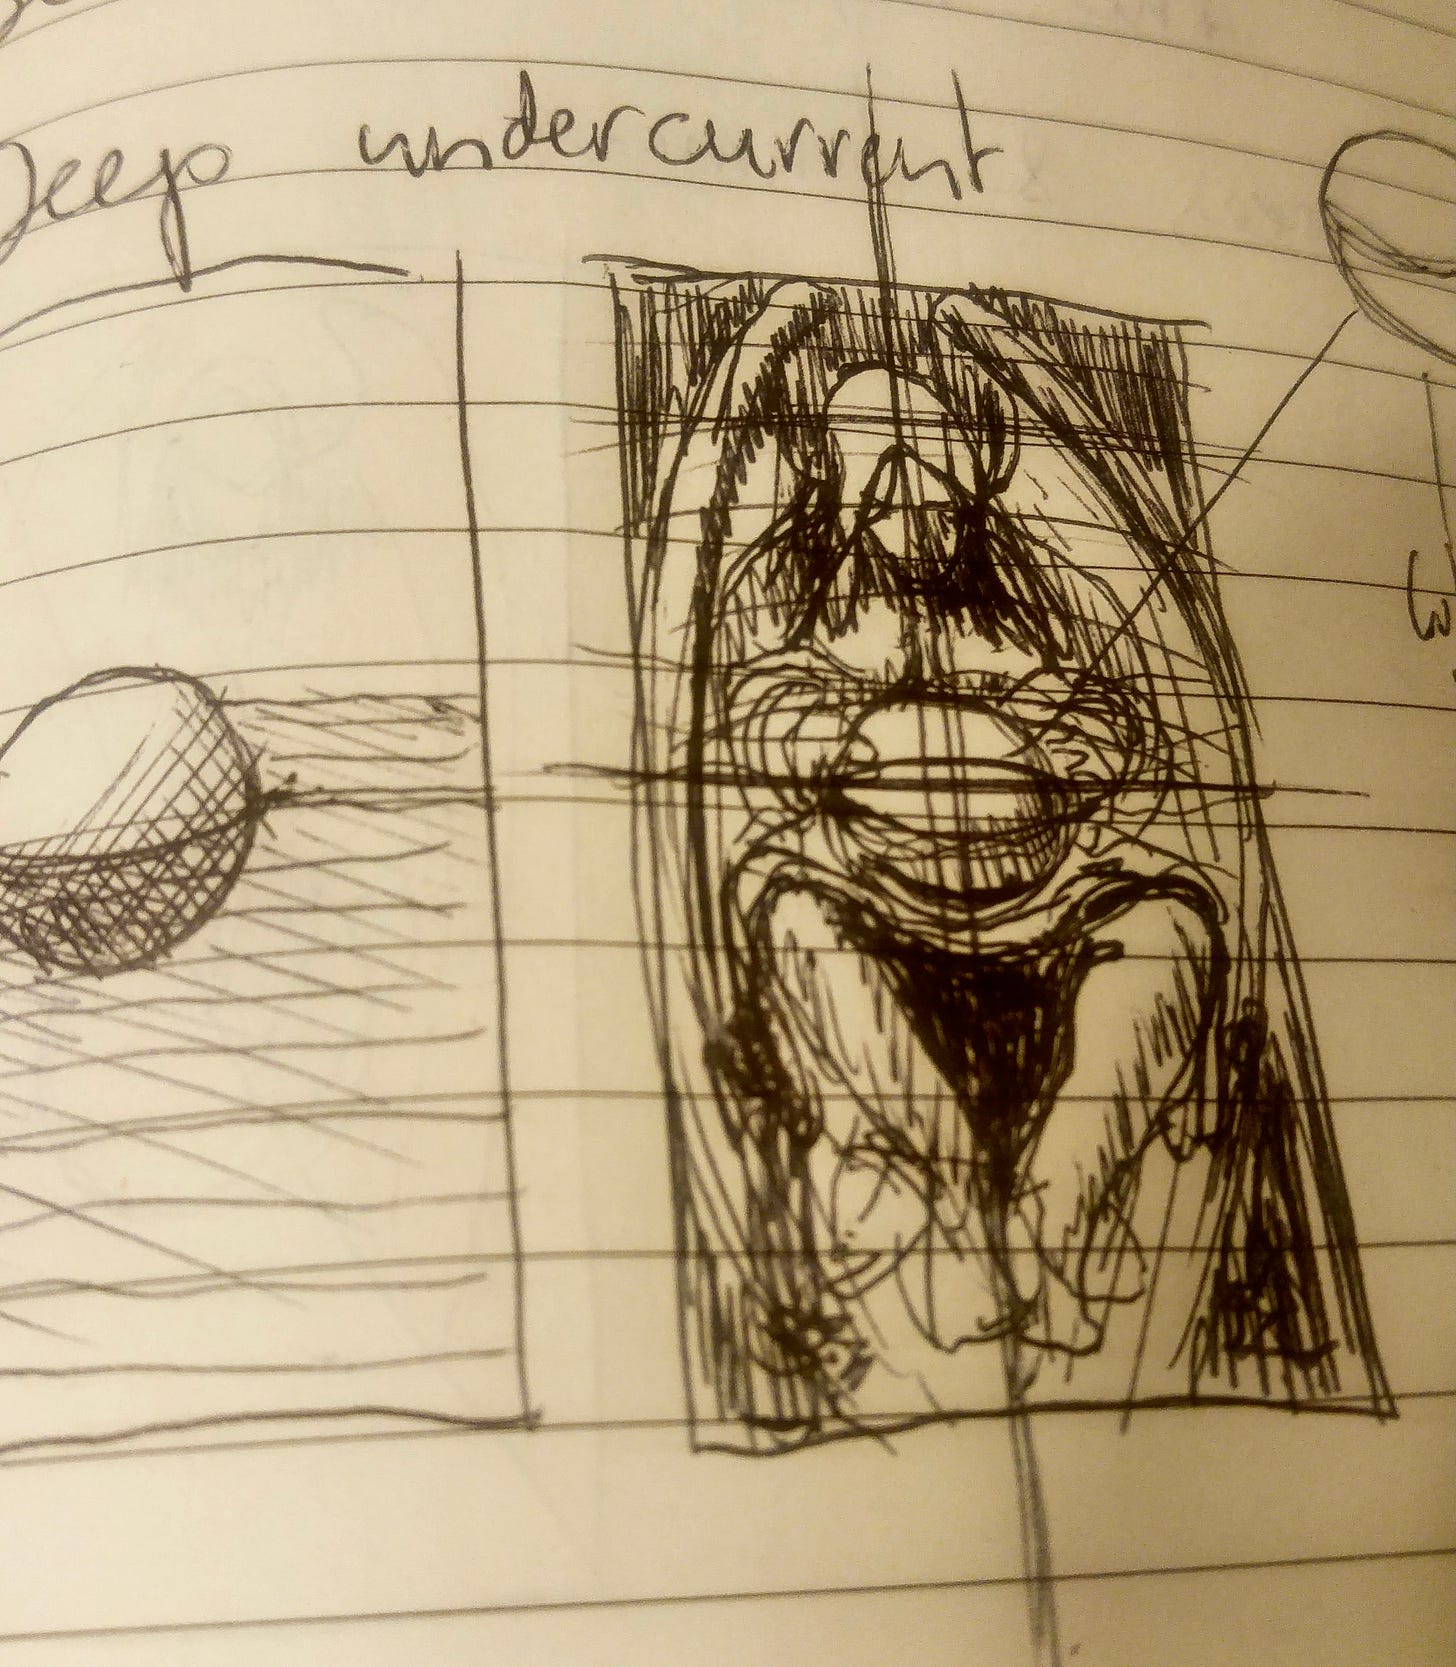 Deep undercurrent